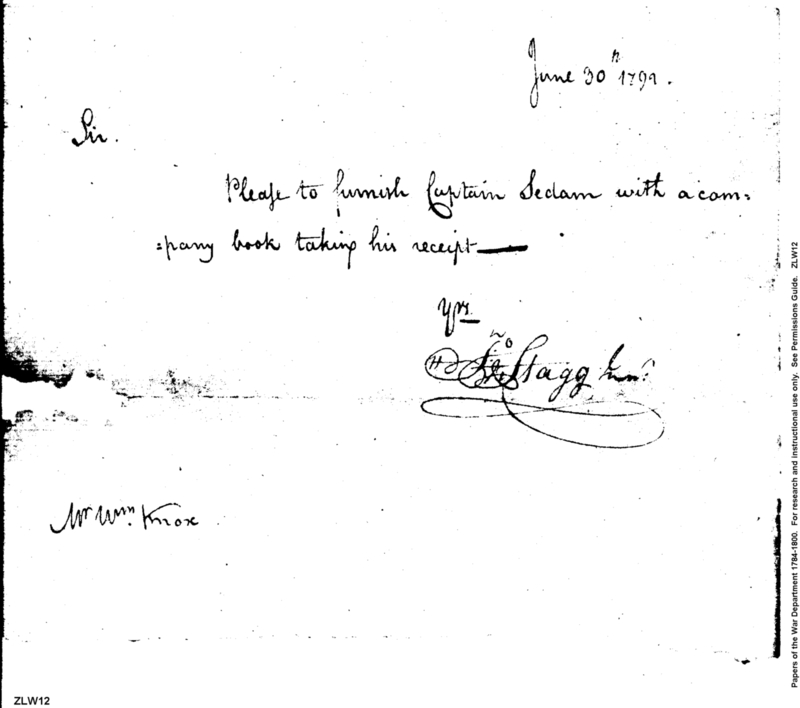 June 30th 1792.
Sir.
Please to furnish Captain Sedam with a com=
=pany book taking his receipt
Yrs
Jno Stagg Junr
Mr Wm Knox
ZLW12
Papers of the War Department 1784-1800. For research and instructional use only. See Permissions Guide. ZLW12